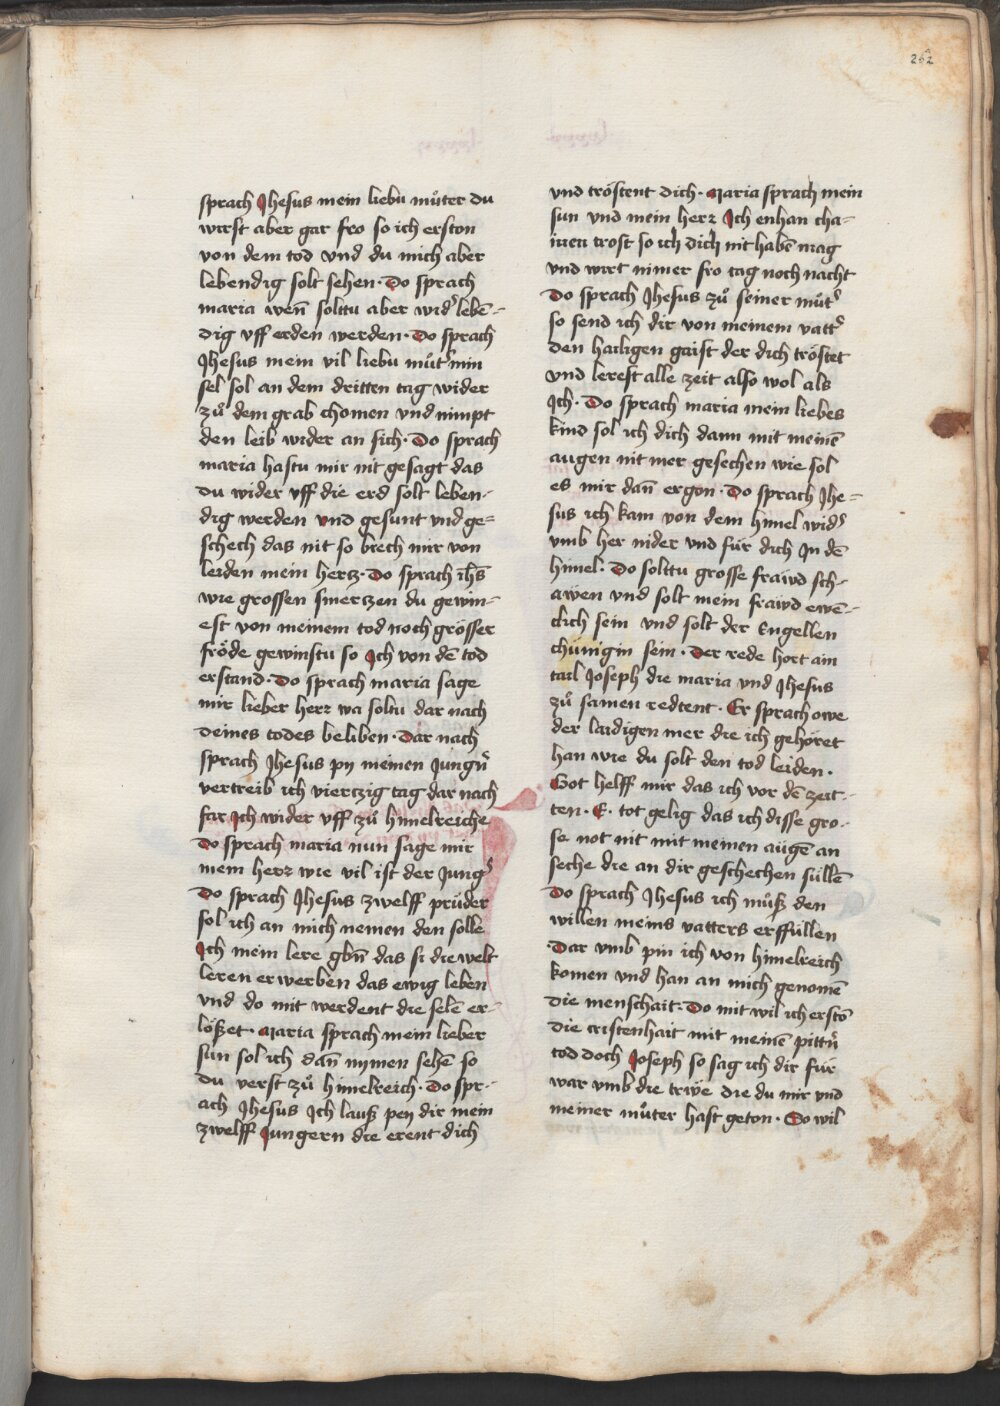 262
sprach Jhesus mein liebu muͦter du
wirst aber gar fro so ich erston
von dem tod vnd du mich aber
lebendig solt sehen · Do sprach
maria wen̄ solttu aber wid' lebē-
dig vff erden werden · Do sprach
Jhesus mein vil liebu muͦt' min
sel sol an dem dritten tag wider
zuͦ dem grab chomen vnd nimpt
den leib wider an sich · Do sprach
maria hastu mir nit gesagt das
du wider vff die erd solt leben-
dig werden vnd gesunt vnd ge-
schech das nit so brech mir von
leiden mein hertz · Do sprach ih̄s
wie grossen smertzen du gewin-
est von meinem tod noch grösser
fröde gewinstu so Ich von dē tod
erstand · Do sprach maria sage
mir lieber herz wa soltu dar nach
deines todes beliben · Dar nach
sprach Jhesus py meinen Jungn̄
vertreib ich viertzig tag dar nach
far Ich wider vff zuͦ himelreiche
Do sprach maria nun sage mir
mein herz wie vil ist der Jung'
Do sprach Jhesus zwelff pruͤder
sol ich an mich nemen den solle
Ich mein lere gbn̄ das si die welt
leren erwerben das ewig leben
vnd do mit werdent die sele er-
lößet · Maria sprach mein lieber
sun sol ich dan̄ nymen sehē so
du verst zuͦ himelreich · Do spr-
ach Jhesus Ich lauß pey dir mein
zwelff Jungern die erent dich
vnd tröstent dich · Maria sprach mein
sun vnd mein herz Ich enhan cha-
inen trost so ich dich nit habē mag
vnd wirt nimer fro tag noch nacht
Do sprach Jhesus zuͦ seiner muͦt'
so send ich dir von meinem vatt'
den hailigen gaist der dich tröstet
vnd lerest alle zeit also wol als
Ich · Do sprach maria mein liebes
kind sol ich dich dann mit meinē
augen nit mer gesechen wie sol
es mir dan̄ ergon · Do sprach Jhe-
sus ich kam von dem himel wid'
vmb her nider vnd für dich In dē
himel · Do solttu grosse fräwd sch-
awen vnd solt mein fräwd ewē-
clich sein vnd solt der Engellen
chünigin sein · Der rede hort ain
tail Joseph die maria vnd Jhesus
zuͦ samen redtent · Er sprach owe
der laidigen mer die ich gehöret
han wie du solt den tod leiden ·
Got helff mir das ich vor dē zeit-
ten · E · tot gelig das ich disse gro-
se not nit mit meinen augē an
seche die an dir geschechen süllē
Do sprach Jhesus ich muͦß den
willen meins vatters erffüllen
Dar vmb pin ich von himelreich
komen vnd han an mich genomē
die menschait · Do mit wil ich erstō
die cristenhait mit meinē pittn̄
tod doch Joseph so sag ich dir für
war vmb die triẅe die du mir vnd
meiner muͦter hast geton · So wil